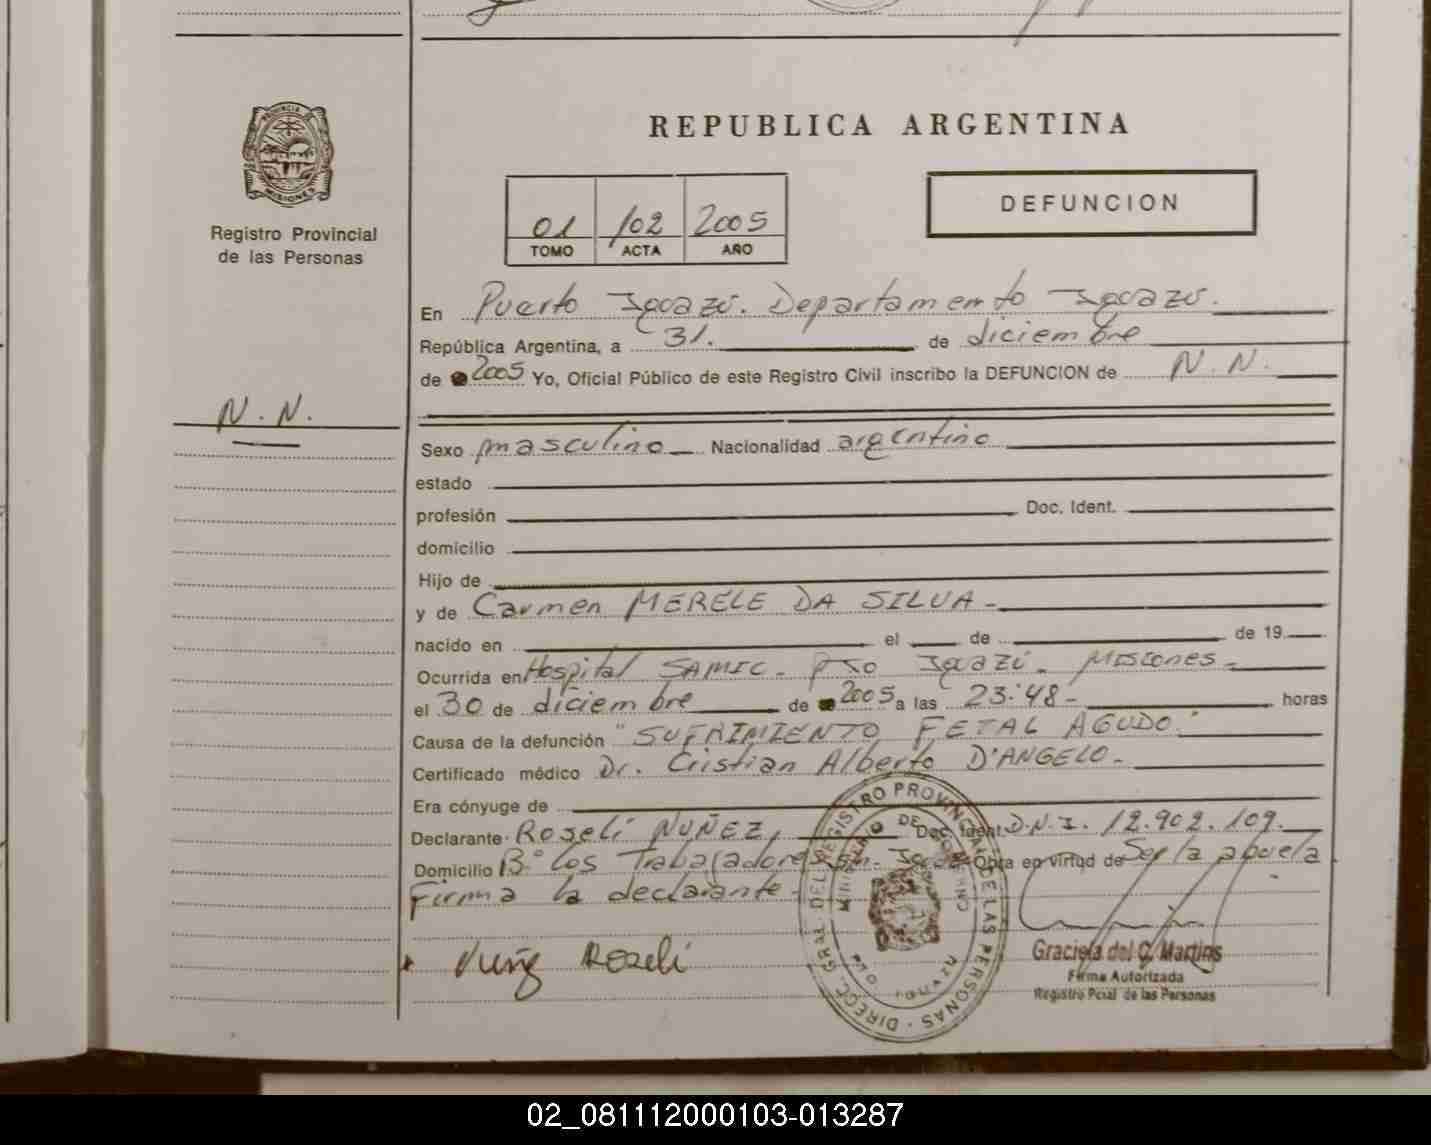 REPUBLICA ARGENTINA
PROVINCIA DE
MISIONES
Registro Provincial
de las Personas
01 102 2005
TOMO ACTA AÑO
DEFUNCION
En Puerto Iguazú. Departamento Iguazú.
República Argentina, a 31. de diciembre
de 2005 Yo, Oficial Público de este Registro Civil inscribo la DEFUNCION de N. N.
N. N.
Sexo masculino Nacionalidad argentino
estado
profesión Doc. Ident.
domicilio
Hijo de
y de Carmen MERELE DA SILVA -
nacido en el de de 19
Ocurrida en Hospital SAMIC - Pto Iguazú - Misiones -
el 30 de diciembre de 2005 a las 23:48 - horas
Causa de la defunción "SUFRIMIENTO FETAL AGUDO."
Certificado médico Dr. Cristian Alberto D'ANGELO -
Era cónyuge de
Declarante Roseli NUÑEZ, Doc. Ident. D.N.I. 12.902.109.
Domicilio B° Los Trabajadores Obra en virtud de Ser la abuela
Firma la declarante -
Nuñez Roseli
DIREC. GRAL DEL REGISTRO PROVINCIAL DE LAS PERSONAS
MINISTERIO DE GOBIERNO
PTO IGUAZU
Graciela del C. Martins
Firma Autorizada
Registro Pcial de las Personas
02_081112000103-013287